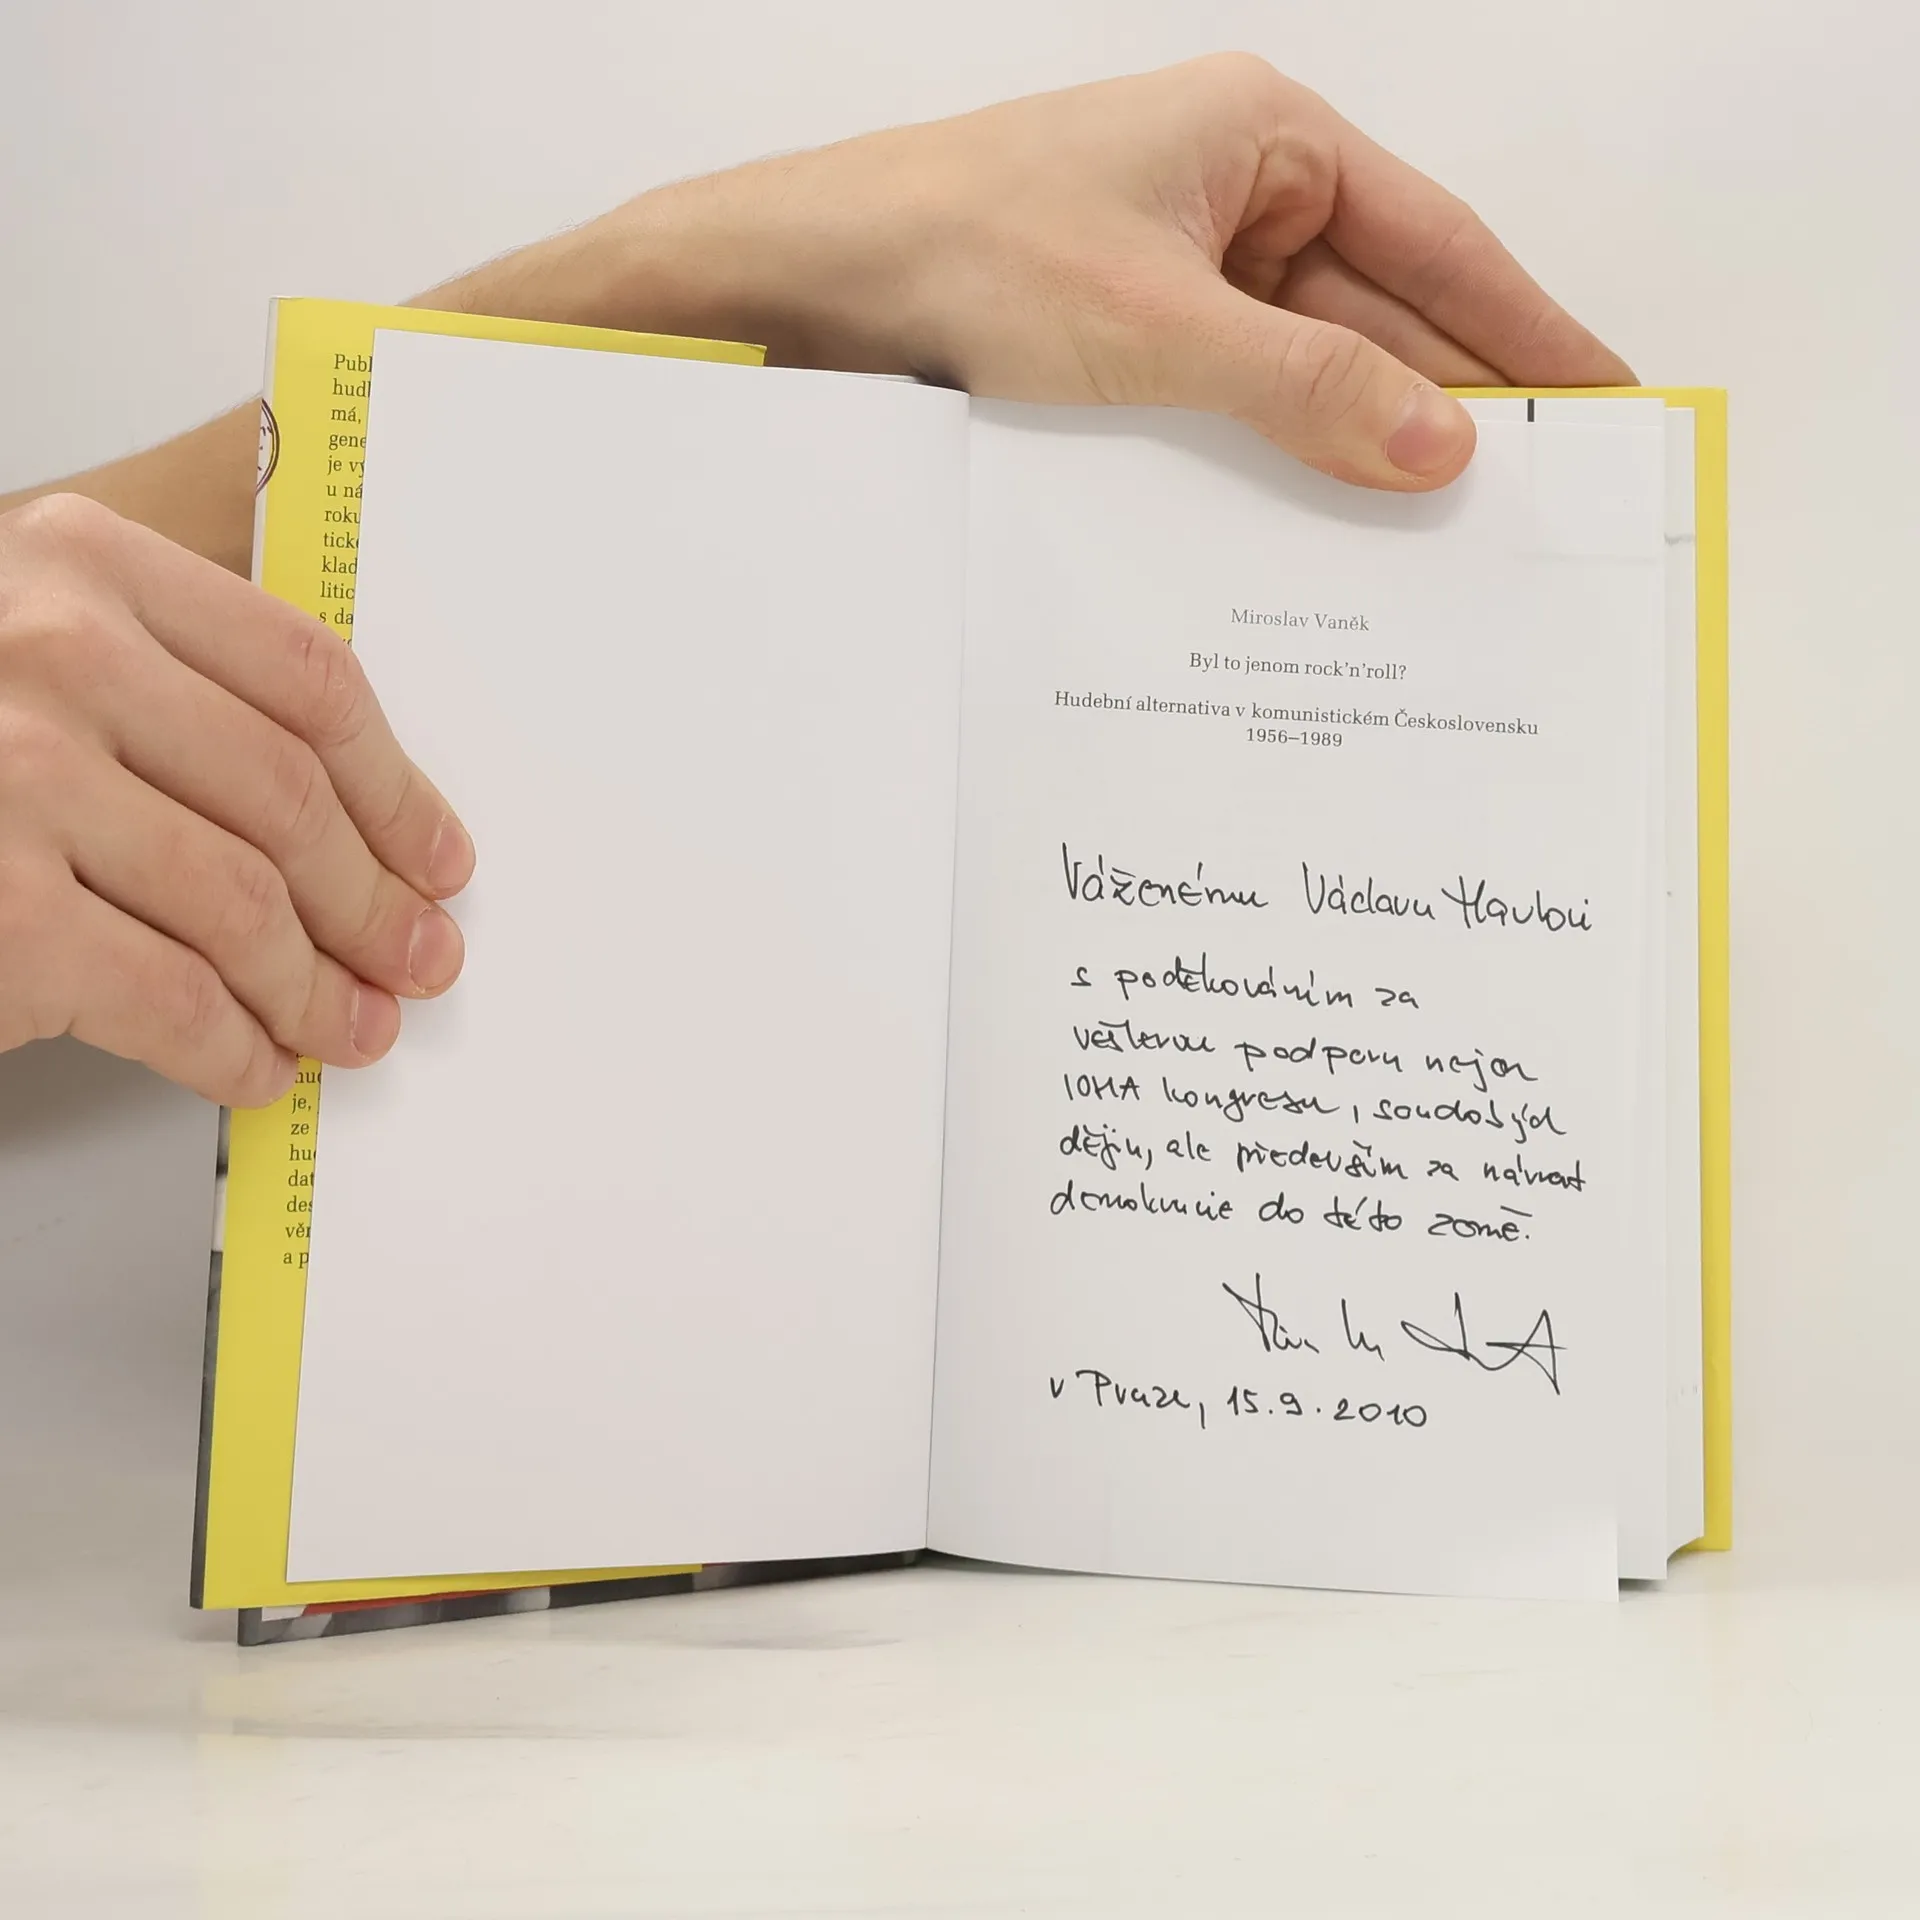 Publ
hudl
má,
gene
je vý
u ná
roku
tické
klad
litic
s da
huc
je,
ze
hu
dat
des
věr
a p
Miroslav Vaněk
Byl to jenom rock’n’roll?
Hudební alternativa v komunistickém Československu
1956–1989
Váženému Václavu Havlovi
s poděkováním za
veškerou podporu nejen
IOHA kongresu, soudobých
dějin, ale především za návrat
demokracie do této země.
v Praze, 15.9.2010